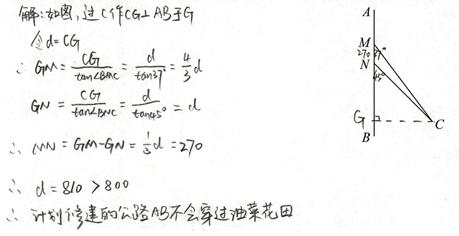 解:如图,过C作CG⊥AB于G
令d=CG
∴ GM = CG/tan∠BMC = d/tan37° = 4/3 d
GN = CG/tan∠BNC = d/tan45° = d
∴ MN = GM-GN = 1/3 d = 270
∴ d = 810 > 800
∴ 计划修建的公路AB不会穿过油菜花田
A
M
270 37°
N
45°
G
C
B